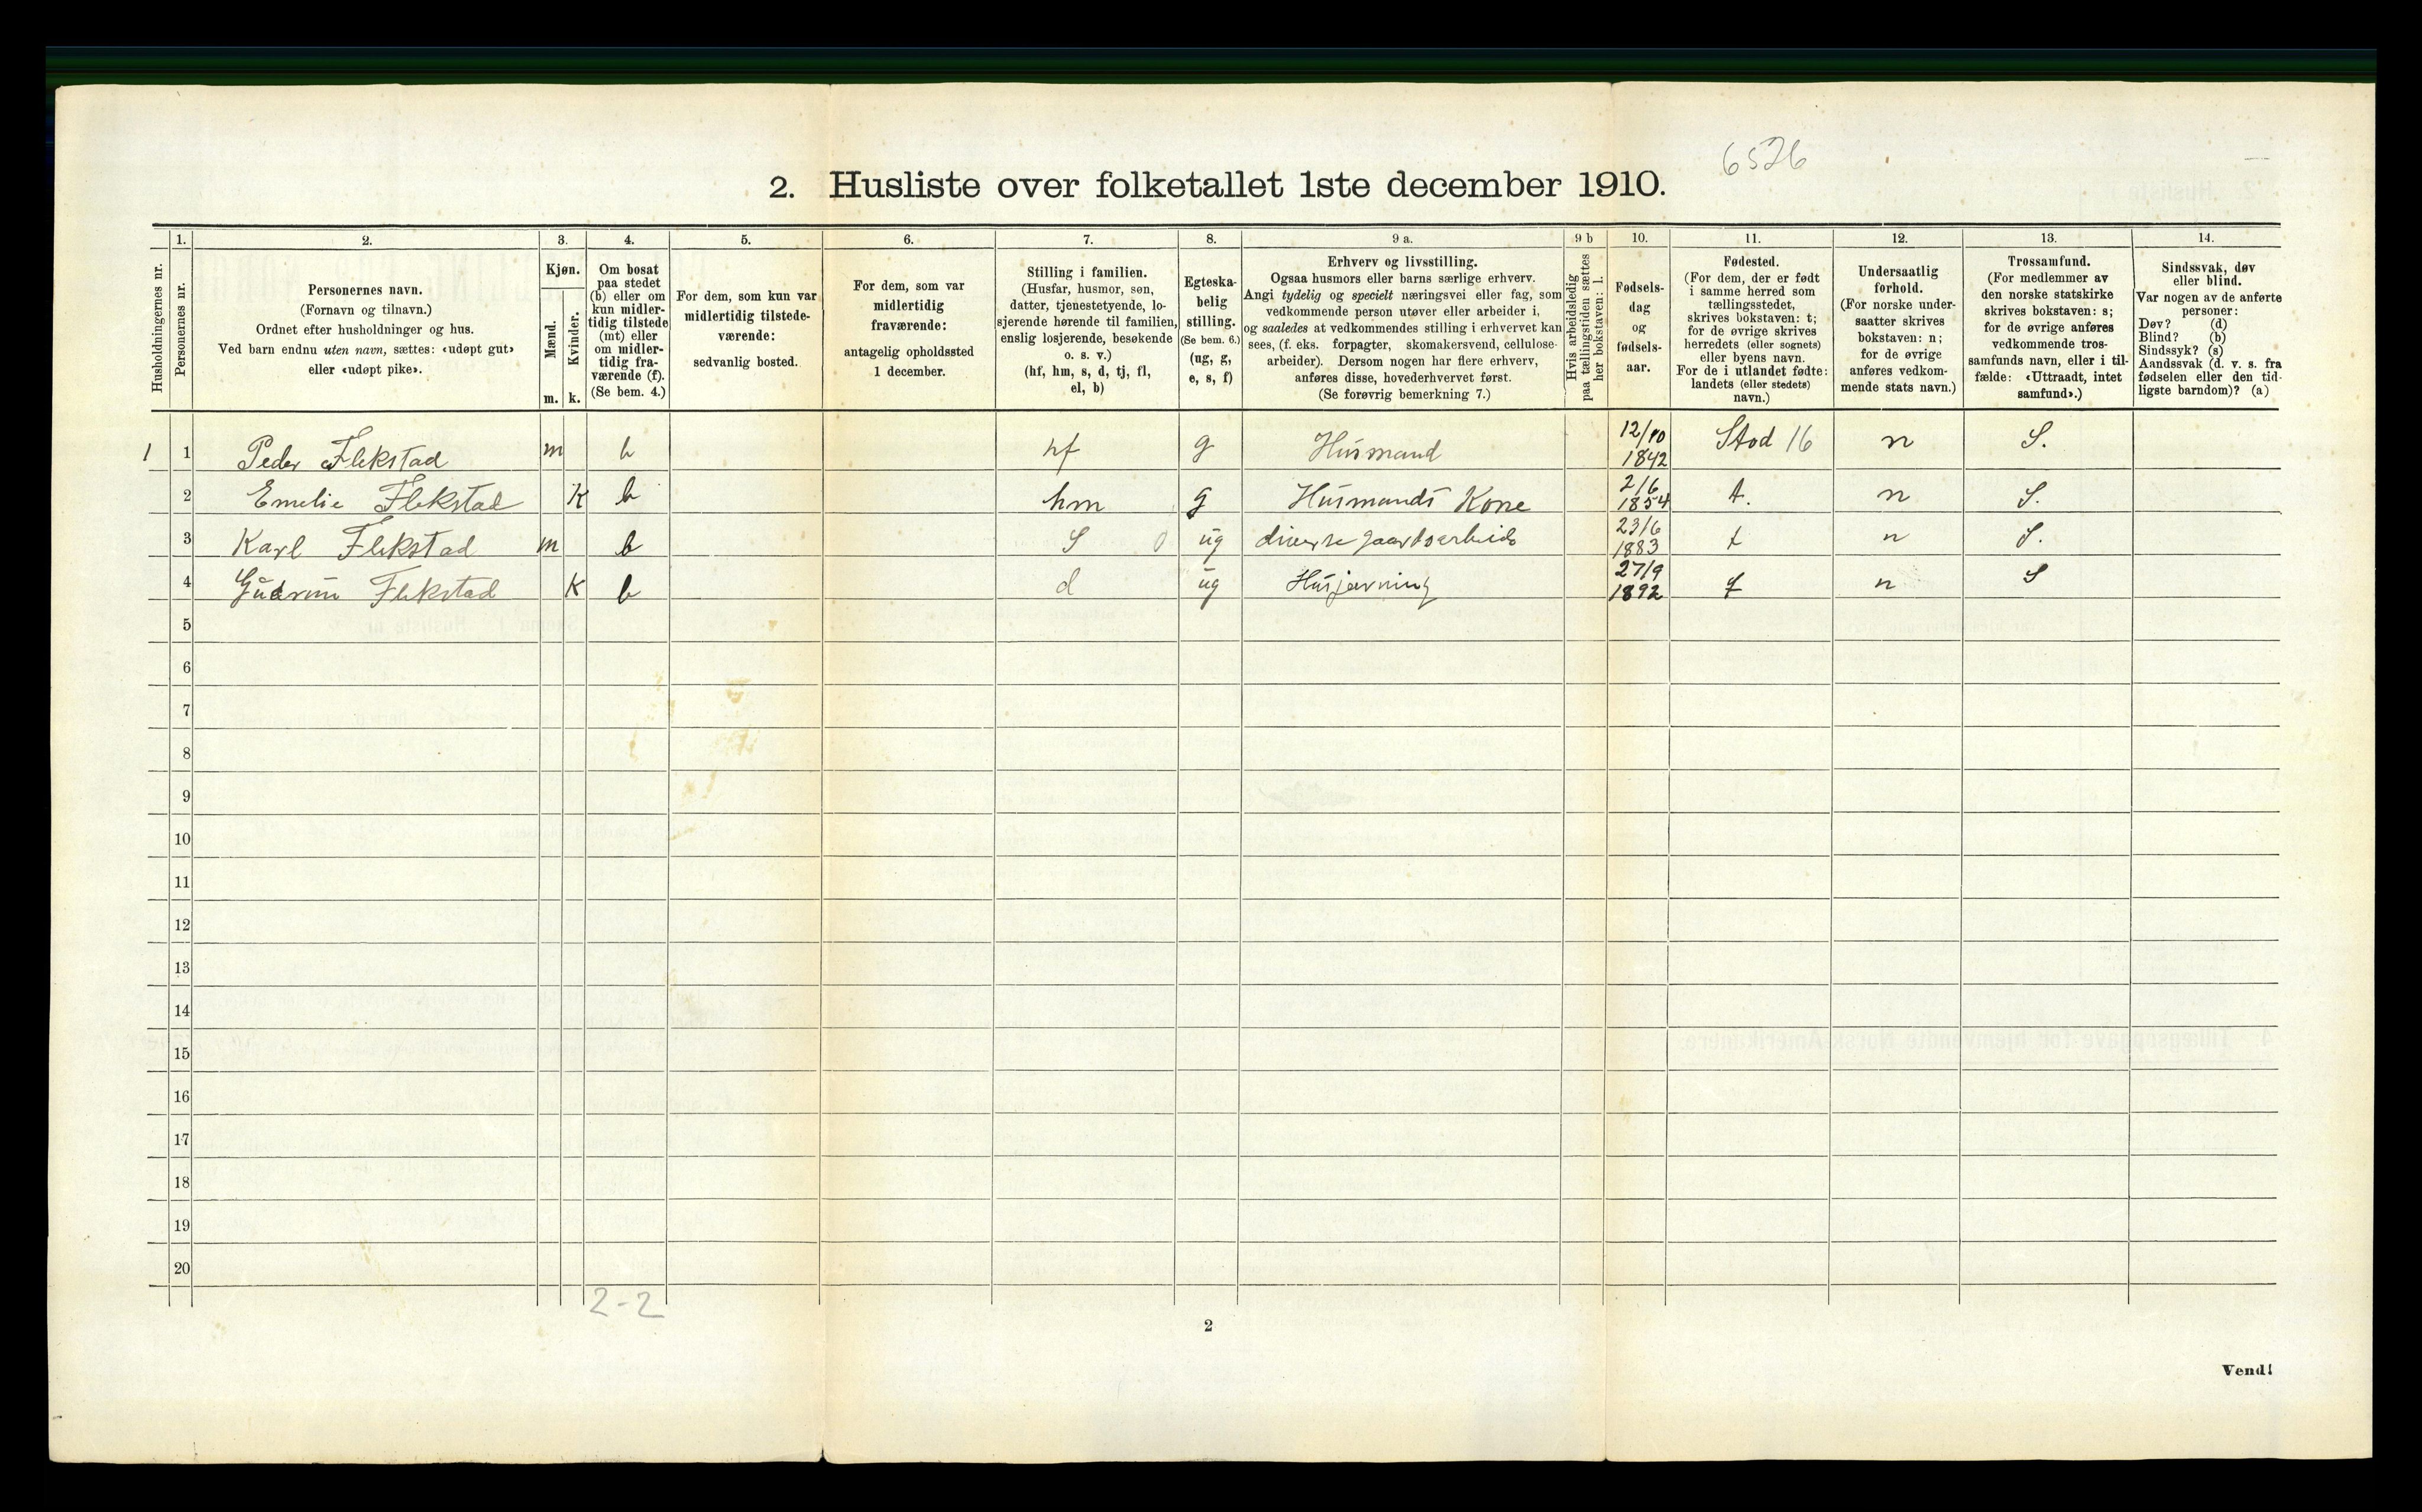 6526
2. Husliste over folketallet 1ste december 1910.
Husholdningernes nr.
1.
Personernes nr.
2.
Personernes navn.
(Fornavn og tilnavn.)
Ordnet efter husholdninger og hus.
Ved barn endnu uten navn, sættes: «udøpt gut»
eller «udøpt pike».
3.
Kjøn.
Mænd.
Kvinder.
m. k.
4.
Om bosat
paa stedet
(b) eller om
kun midler-
tidig tilstede
(mt) eller
om midler-
tidig fra-
værende (f).
(Se bem. 4.)
5.
For dem, som kun var
midlertidig tilstede-
værende:
sedvanlig bosted.
6.
For dem, som var
midlertidig
fraværende:
antagelig opholdssted
1 december.
7.
Stilling i familien.
(Husfar, husmor, søn,
datter, tjenestetyende, lo-
sjerende hørende til familien,
enslig losjerende, besøkende
o. s. v.)
(hf, hm, s, d, tj, fl,
el, b)
8.
Egteska-
belig
stilling.
(Se bem. 6.)
(ug, g,
e, s, f)
9 a.
Erhverv og livsstilling.
Ogsaa husmors eller barns særlige erhverv.
Angi tydelig og specielt næringsvei eller fag, som
vedkommende person utøver eller arbeider i,
og saaledes at vedkommendes stilling i erhvervet kan
sees, (f. eks. forpagter, skomakersvend, cellulose-
arbeider). Dersom nogen har flere erhverv,
anføres disse, hovederhvervet først.
(Se forøvrig bemerkning 7.)
9 b
Hvis arbeidsledig
paa tællingstiden sættes
her bokstaven: l.
10.
Fødsels-
dag
og
fødsels-
aar.
11.
Fødested.
(For dem, der er født
i samme herred som
tællingsstedet,
skrives bokstaven: t;
for de øvrige skrives
herredets (eller sognets)
eller byens navn.
For de i utlandet fødte:
landets (eller stedets)
navn.)
12.
Undersaatlig
forhold.
(For norske under-
saatter skrives
bokstaven: n;
for de øvrige
anføres vedkom-
mende stats navn.)
13.
Trossamfund.
(For medlemmer av
den norske statskirke
skrives bokstaven: s;
for de øvrige anføres
vedkommende tros-
samfunds navn, eller i til-
fælde: «Uttraadt, intet
samfund».)
14.
Sindssvak, døv
eller blind.
Var nogen av de anførte
personer:
Døv? (d)
Blind? (b)
Sindssyk? (s)
Aandssvak (d. v. s. fra
fødselen eller den tid-
ligste barndom)? (a)
1 1 Peder Flekstad m b hf g Husmand 12/10 1842 Stod 16 n S.
2 Emelie Flekstad K b hm g Husmands Kone 2/6 1854 t. n S.
3 Karl Flekstad m b S 0 ug diverse gaardsarbeid 23/6 1883 t n S.
4 Gudrun Flekstad K b d ug Husjerning 27/9 1892 t n S
5
6
7
8
9
10
11
12
13
14
15
16
17
18
19
20
2-2
2
Vend!